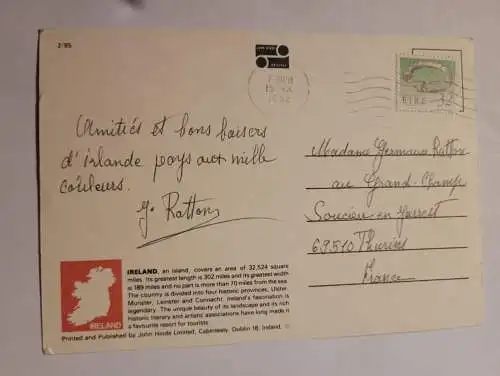 2/85
ÉIRE 32
Amitiés et bons baisers
d'irlande pays aux mille
couleurs.
Y. Ratton
Madame Germaine Ratton
au Grand-Champ
Soucieu en Jarrest
69510 Thurins
France
IRELAND, an island, covers an area of 32,524 square
miles. Its greatest length is 302 miles and its greatest width
is 189 miles and no part is more than 70 miles from the sea.
The country is divided into four historic provinces, Ulster,
Munster, Leinster and Connacht. Ireland's fascination is
legendary. The unique beauty of its landscape and its rich
historic literary and artistic associations have long made it
a favourite resort for tourists.
IRELAND
Printed and Published by John Hinde Limited, Cabinteely, Dublin 18, Ireland. ©